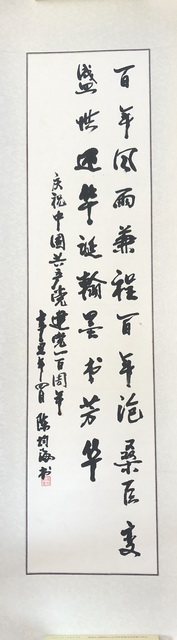 百年风雨兼程百年沧桑巨变
盛世迎华诞翰墨书芳华
庆祝中国共产党建党一百周年
辛丑年四月 陈均海书